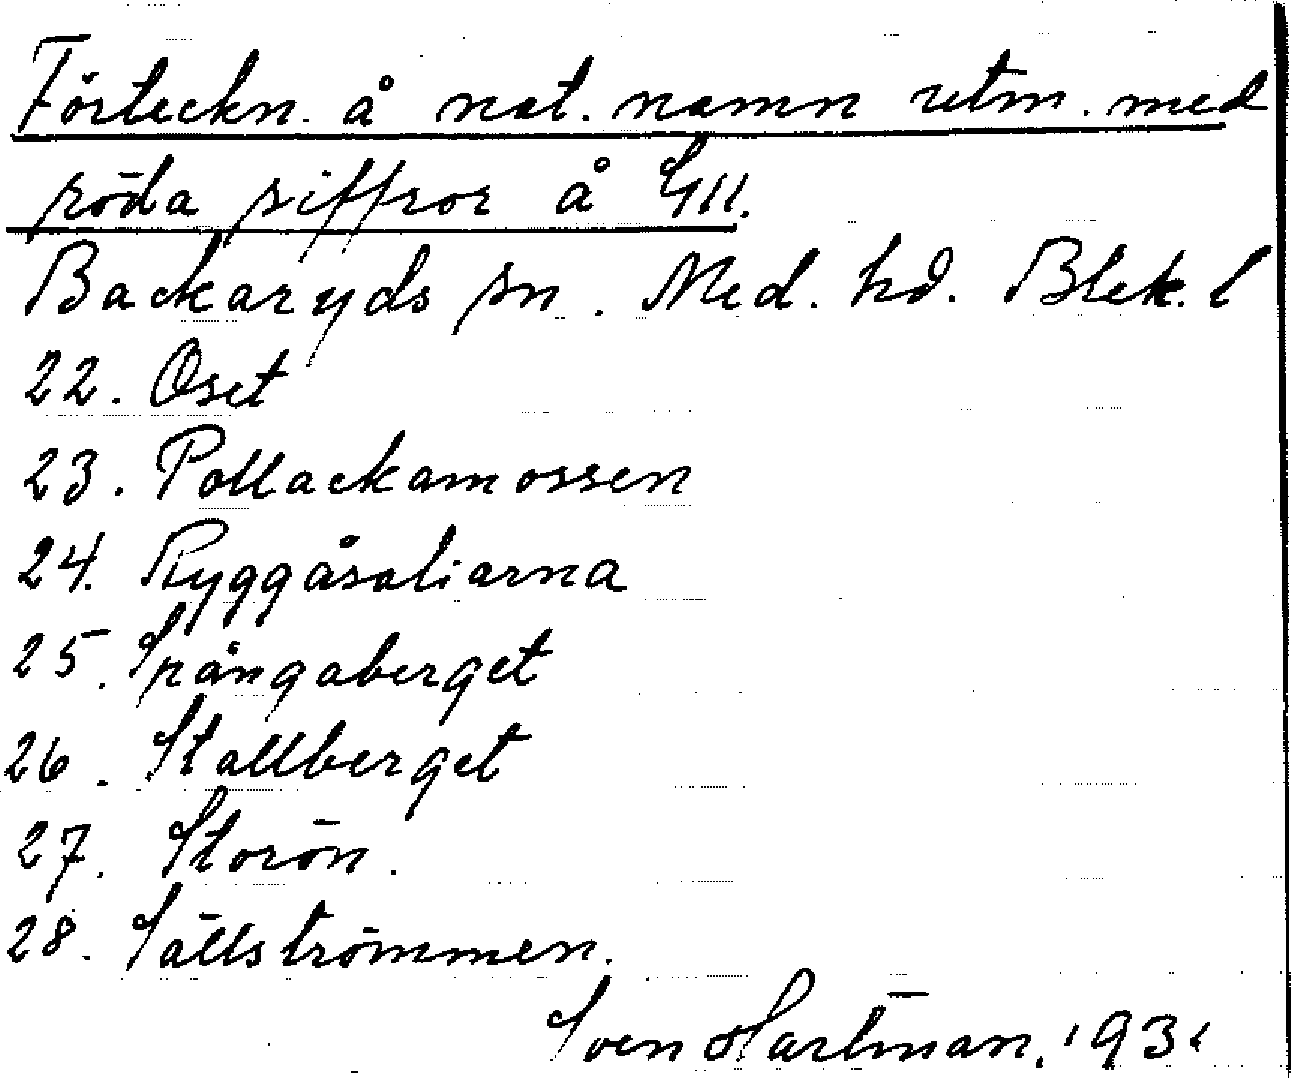 Förteckn. å nat. namn utm. med
röda siffror å G11.
Backaryds sn. Med. hd. Blek. l
22. Oset
23. Pollackamossen
24. Ryggåsaliarna
25. Spångaberget
26. Stallberget
27. Storön.
28. Sällströmmen.
Sven Hartman. 1931